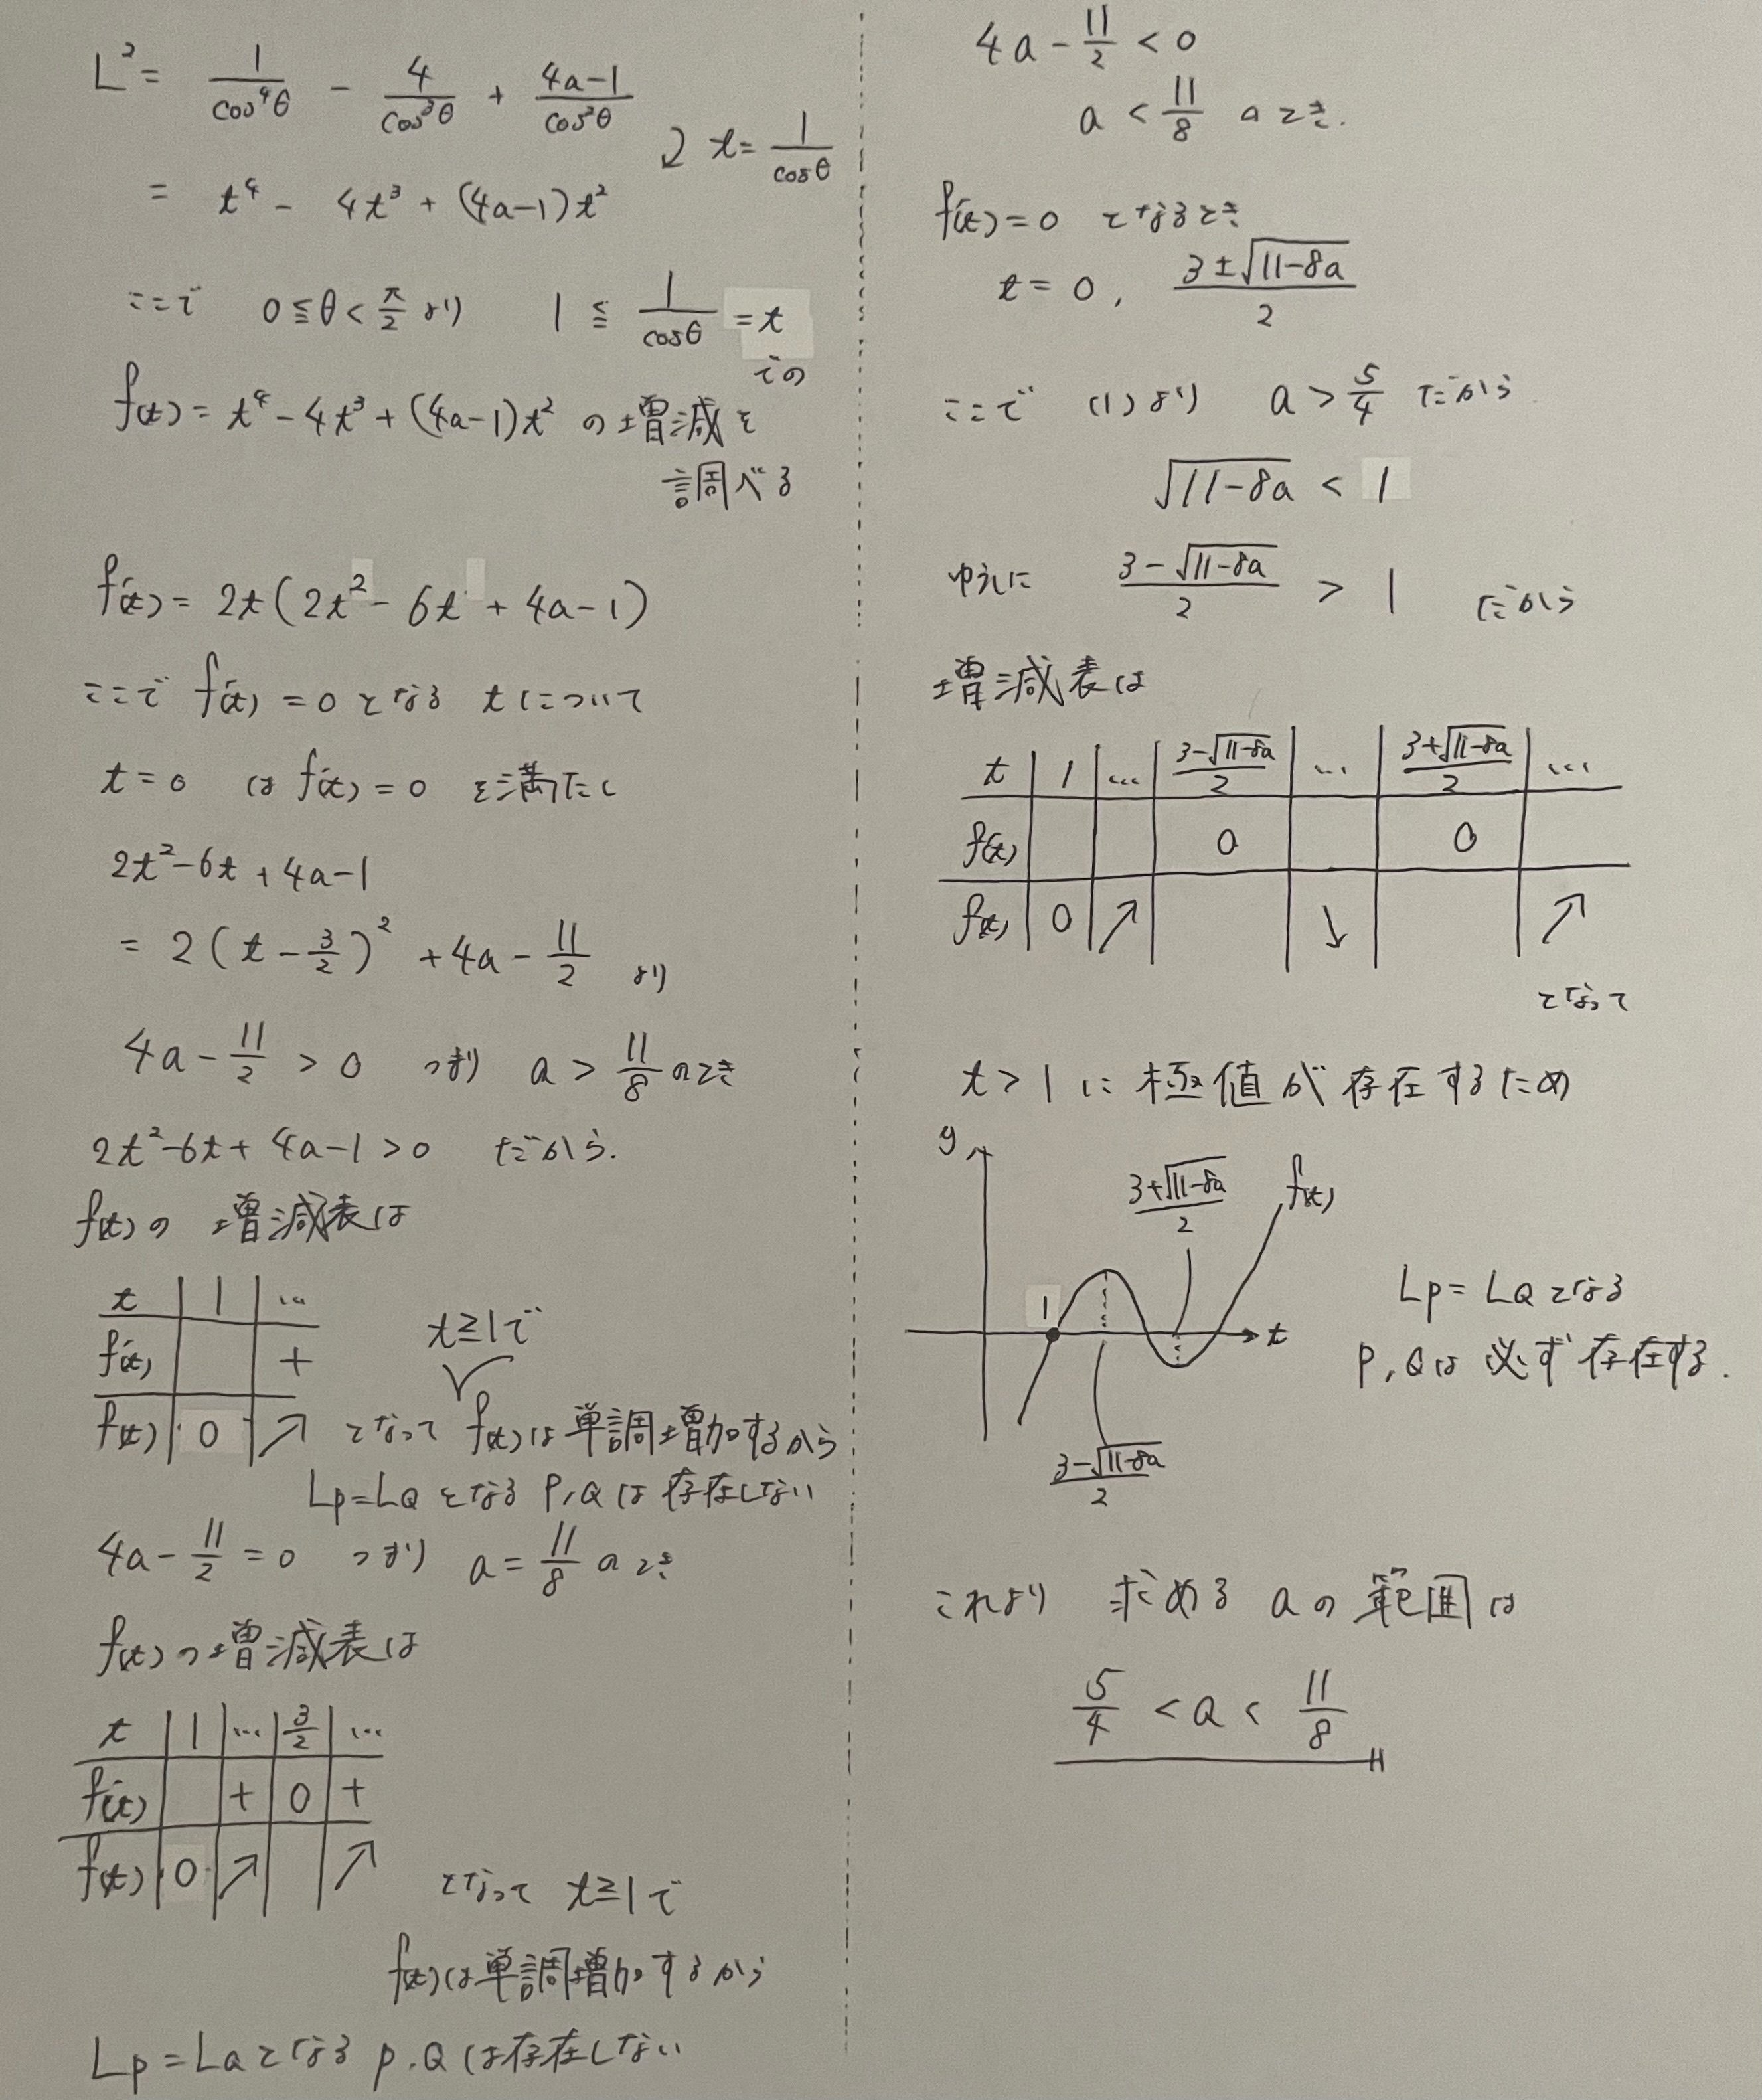 L² = 1/cos⁴θ - 4/cos³θ + (4a-1)/cos²θ
↓ t = 1/cosθ
= t⁴ - 4t³ + (4a-1)t²
ここで 0≦θ<π/2 より 1 ≦ 1/cosθ = t
での
f(t) = t⁴ - 4t³ + (4a-1)t² の増減を
調べる
f'(t) = 2t(2t² - 6t + 4a-1)
ここで f'(t) = 0 となる tについて
t = 0 は f'(t) = 0 を満たし
2t²-6t+4a-1
= 2(t - 3/2)² + 4a - 11/2 より
4a - 11/2 > 0 つまり a > 11/8 のとき
2t²-6t+4a-1>0 だから.
f(t)の 増減表は
t | 1 | …
f'(t) | | +
f(t) | 0 | ↗
t≧1で
となって f(t)は単調増加するから
Lp=LQ となる P,Qは存在しない
4a - 11/2 = 0 つまり a = 11/8 のとき
f(t)の増減表は
t | 1 | … | 3/2 | …
f'(t) | | + | 0 | +
f(t) | 0 | ↗ | | ↗
となって t≧1で
f(t)は単調増加するから
Lp=LQとなる P,Qは存在しない
4a - 11/2 < 0
a < 11/8 のとき.
f'(t) = 0 となるとき
t = 0, (3±√(11-8a))/2
ここで (1)より a > 5/4 だから
√(11-8a) < 1
ゆえに (3-√(11-8a))/2 > 1 だから
増減表は
t | 1 | … | (3-√(11-8a))/2 | … | (3+√(11-8a))/2 | …
f'(t) | | | 0 | | 0 |
f(t) | 0 | ↗ | | ↘ | | ↗
となって
t>1に 極値が 存在するため
y
(3+√(11-8a))/2
f(t)
1
t
(3-√(11-8a))/2
Lp = LQ となる
P,Qは 必ず存在する.
これより 求める aの範囲は
5/4 < a < 11/8